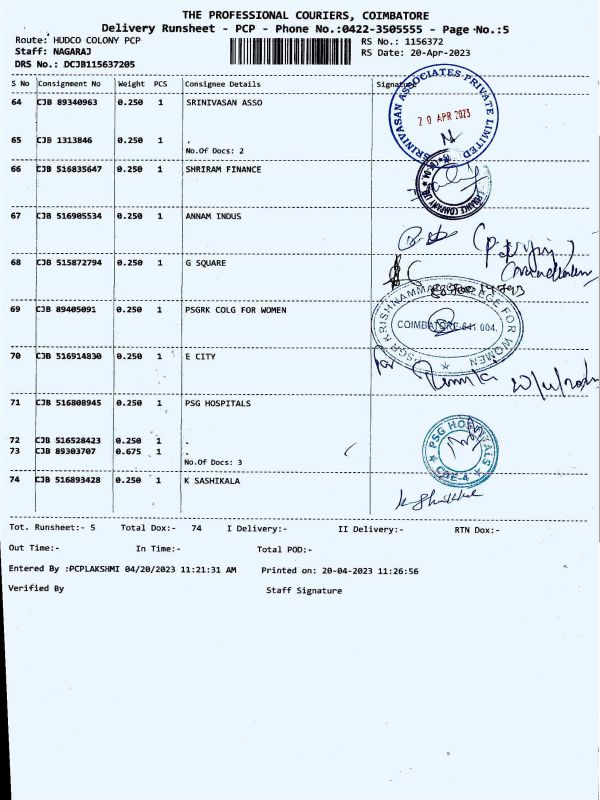 THE PROFESSIONAL COURIERS, COIMBATORE
Delivery Runsheet - PCP - Phone No.:0422-3505555 - Page No.:5
Route: HUDCO COLONY PCP
RS No.: 1156372
Staff: NAGARAJ
RS Date: 20-Apr-2023
DRS No.: DCJB115637205
S No Consignment No Weight PCS Consignee Details Signature
64 CJB 89340963 0.250 1 SRINIVASAN ASSO
SRINIVASAN ASSOCIATES PRIVATE LIMITED
20 APR 2023
65 CJB 1313846 0.250 1 .
No.Of Docs: 2
66 CJB 516835647 0.250 1 SHRIRAM FINANCE
67 CJB 516905534 0.250 1 ANNAM INDUS
68 CJB 515872794 0.250 1 G SQUARE
69 CJB 89405091 0.250 1 PSGRK COLG FOR WOMEN
PSGR KRISHNAMMAL COLLEGE FOR WOMEN
COIMBATORE-641 004.
70 CJB 516914830 0.250 1 E CITY
71 CJB 516808945 0.250 1 PSG HOSPITALS
PSG HOSPITALS
CBE-4
72 CJB 516528423 0.250 1 .
73 CJB 89303707 0.675 1 .
No.Of Docs: 3
74 CJB 516893428 0.250 1 K SASHIKALA
Tot. Runsheet:- 5 Total Dox:- 74 I Delivery:- II Delivery:- RTN Dox:-
Out Time:- In Time:- Total POD:-
Entered By :PCPLAKSHMI 04/20/2023 11:21:31 AM Printed on: 20-04-2023 11:26:56
Verified By Staff Signature